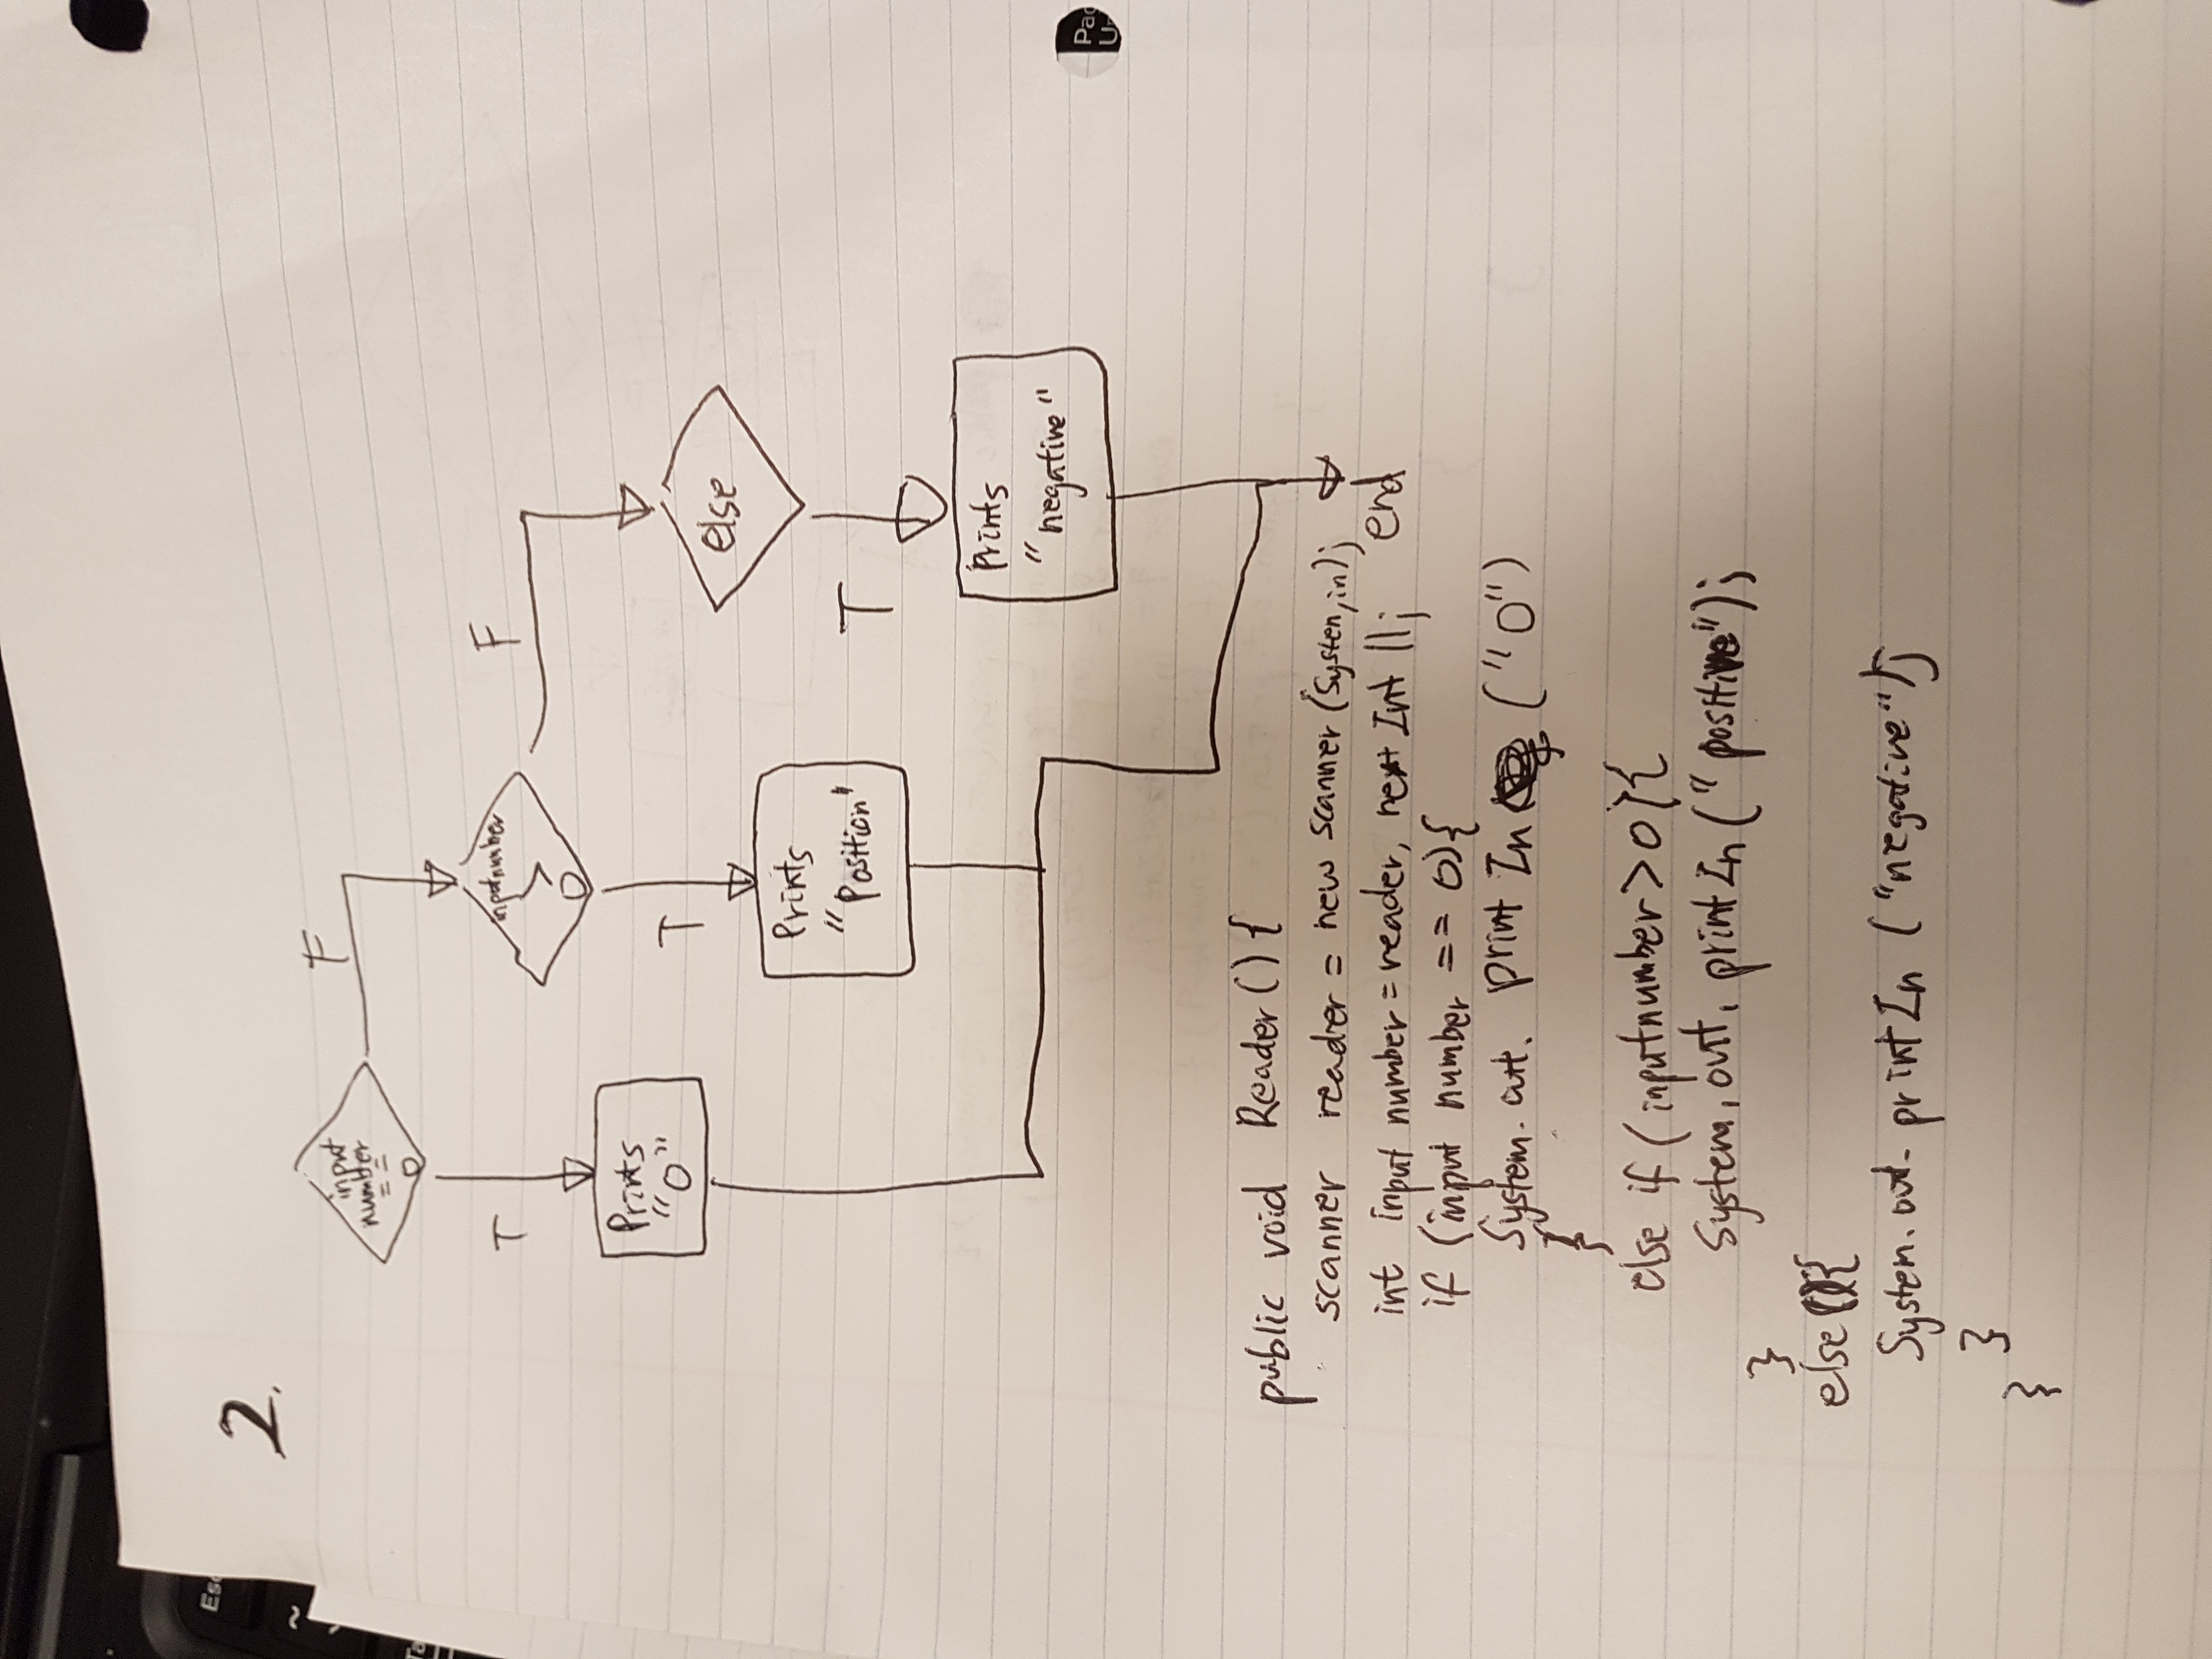 Esc
~
Ta
2.
input
number
==
0
F
T
Prints
"0"
inputnumber
>
0
F
T
Prints
"Position"
else
T
Prints
"negative"
Pag
U
end
public void Reader () {
scanner reader = new scanner (Systen,in);
int input number = reader, next Int ||;
if (input number == 0) {
System. out. print In ("0")
}
else if (inputnumber > 0) {
System, out, print In ("positive");
}
else {
System. out. print In ("negative");
}
}